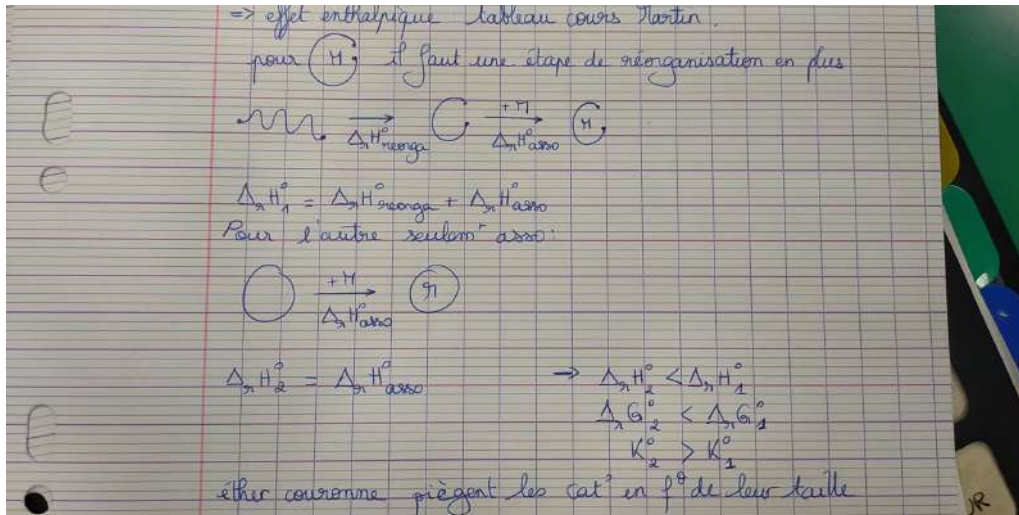 => effet enthalpique tableau cours Martin.
pour (M) il faut une étape de réorganisation en plus
+ M
ΔrH°réorga ΔrH°asso M
ΔrH°1 = ΔrH°réorga + ΔrH°asso
Pour l'autre seulemt asso:
+ M
ΔrH°asso M
ΔrH°2 = ΔrH°asso → ΔrH°2 < ΔrH°1
ΔrG°2 < ΔrG°1
K°2 > K°1
éther couronne piègent les cat° en f° de leur taille
UR